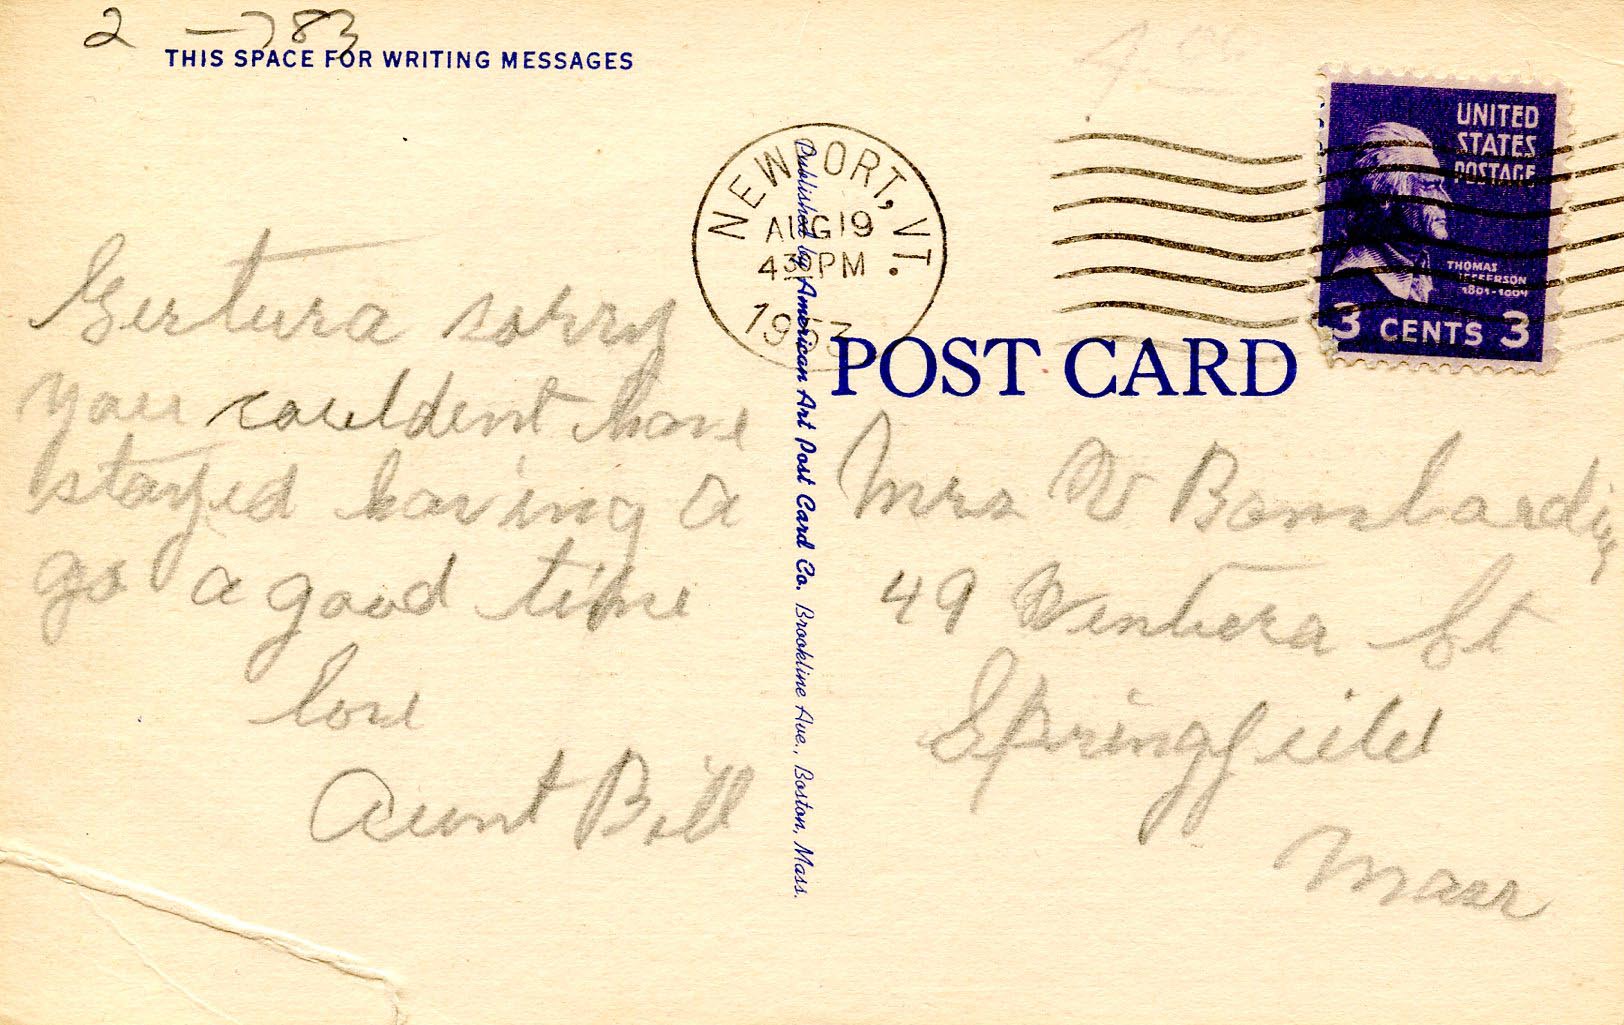 2 - 783
THIS SPACE FOR WRITING MESSAGES
NEWPORT, VT.
AUG 19
430 PM
UNITED
STATES
POSTAGE
THOMAS
JEFFERSON
1801-1809
3 CENTS 3
POST CARD
Published by American Art Post Card Co. Brookline Ave., Boston, Mass.
Gertura sorry
you couldent have
stayed having a
go a good time
love
Aunt Bill
Mrs W Bombardier
49 Ventura St
Springfield
Mass